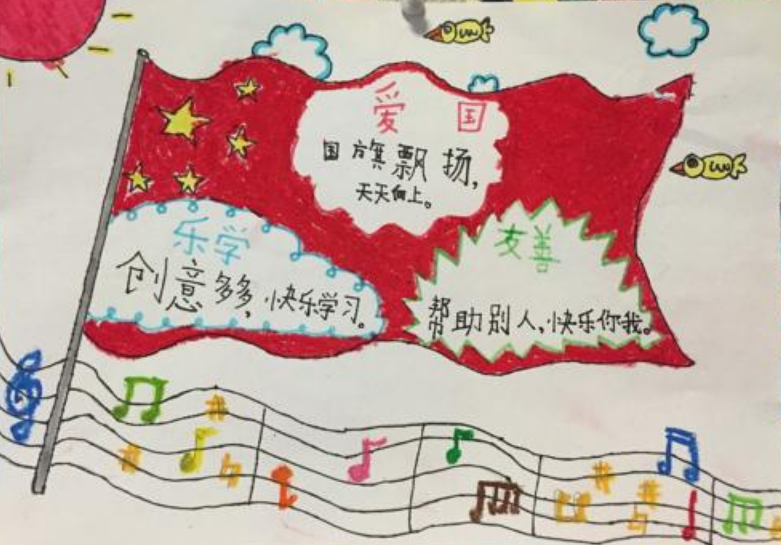 爱 国
国旗飘扬，
天天向上。
乐学
创意多多，快乐学习。
友善
帮助别人，快乐你我。